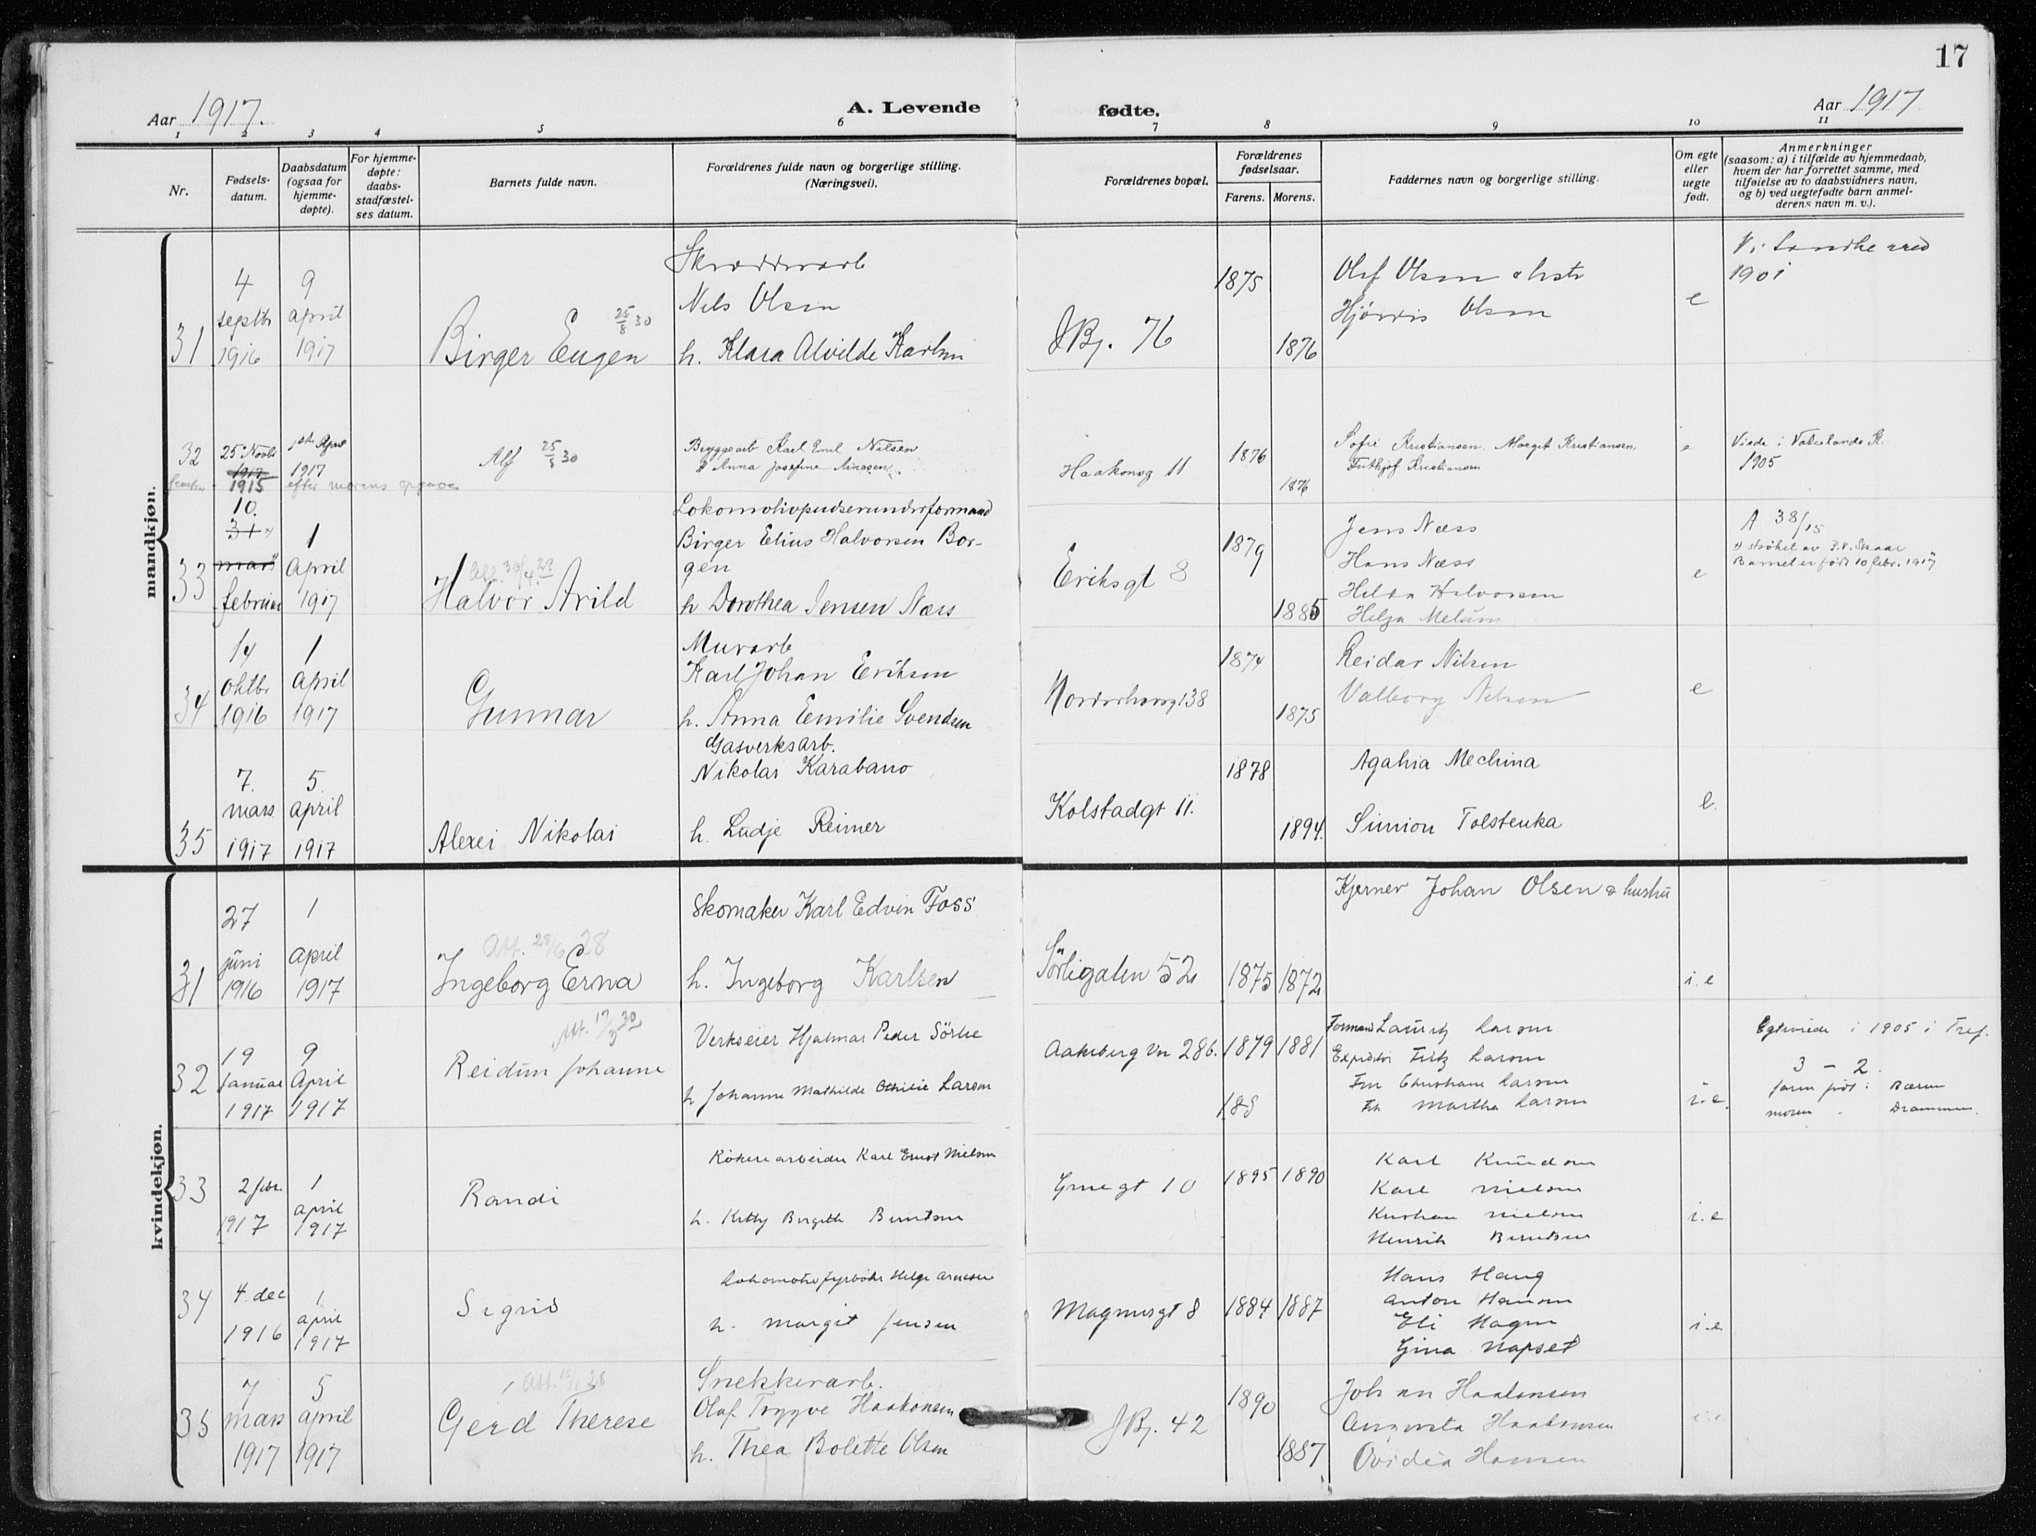 17
Aar 1917.
A. Levende fødte.
Aar 1917.
1 2 3 4 5 6 7 8 9 10 11
Nr.
Fødsels-
datum.
Daabsdatum
(ogsaa for
hjemme-
døpte).
For hjemme-
døpte:
daabs-
stadfæstel-
ses datum.
Barnets fulde navn.
Forældrenes fulde navn og borgerlige stilling.
(Næringsvei).
Forældrenes bopæl.
Forældrenes
fødselsaar.
Farens. Morens.
Faddernes navn og borgerlige stilling.
Om egte
eller
uegte
født.
Anmerkninger
(saasom: a) i tilfælde av hjemmedaab,
hvem der har forrettet samme, med
tilføielse av to daabsvidners navn,
og b) ved uegtefødte barn anmel-
derens navn m. v.).
mandkjøn.
31
4
septbr
1916
9
april
1917
Birger Eugen
25/8 30
Nils Olsen
h. Klara Alvilde Karlsen
JBj. 76
1875
1876
Olaf Olsen & hstr
Hjørdis Olsen
e
1901
32
25 Novbr
1917
1915
1st April
1917
efter morens opgave
Alf
25/8 30
Bryggearb Karl Emil Nilsen
Anna Josefine
Haakonsg 11
1876
1876
Sofie Kristiansen, Margit Kristiansen,
Frithjof Kristiansen
e
Viede i
1905
33
10.
31
mars
februar
1
april
1917
Att. 30/4 29
Halvor Arild
Lokomotivpudserunderformand
Birger Elius Halvorsen Bor-
gen
h Dorothea Jensen Næss
Eriksgt 8
1879
1885
Jens Næss
Hans Næss
Hilda Halvorsen
Helga Melum
e
A 38/15
strøket av P.V. Skaar
Barnet er født 10 febr. 1917
34
14
oktbr
1916
1
april
1917
Gunnar
Murarb
Karl Johan Eriksen
h. Anna Emilie Svendsen
Nordrehaug 38
1874
1875
Reidar Nilsen
Valborg Nilsen
e
35
7.
mars
1917
5.
april
1917
Alexei Nikolai
Gasverksarb.
Nikolai Karabano
h. Ludje Reimer
Kolstadgt 11.
1878
1894.
Agahia Mechina
Simion Tolstenka
e.
kvindekjøn.
31
27
juni
1916
1
april
1917
Att. 28/6 28
Ingeborg Erna
Skomaker Karl Edvin Foss
h. Ingeborg Karlsen
Sørligaten 52
1875 1872
Kjerner Johan Olsen & hustru
i.e
32
19
Januar
1917
9
April
1917
Att. 17/3 30
Reidun Johanne
Verkseier Hjalmar Peder Sørlie
h Johanne Mathilde Othilie Larsen
Aakeberg vn 28b.
1879 1881
188
Formand Lauritz Larsen
Expeditør Fritz Larsen
Fru Christiane Larsen
Frk Martha Larsen
i.e.
Egteviede i 1905 i Tref.
3 - 2.
faren født i Bærum
moren - Drammen.
33
2 febr.
1917
1
april
1917
Randi
Køkerearbeider Karl Ernst Nielsen
h. Kitty Birgith Berntsen
Grue gt 10
1895 1890
Karl Knudsen
Karl Nielsen
Kristian Nielsen
Henrik Berntsen
i.e
34
4. dec
1916
1
april
1917
Sigrid
Lokomotivfyrbøter Helge Arnesen
h. Margit Jensen
Magnusgt 8
1884 1887
Hans Haug
Anton Hansen
Eli Hagen
Gina Napset
i.e
35
7
mars
1917
5
april
1917
Att. 10/1 28
Gerd Therese
Snekkerarb.
Olaf Trygve Haakonsen
h. Thea Bolette Olsen
JBj. 42
1890
1887
Johan Haakensen
Augusta Haakonsen
Ovidia Hansen
i.e